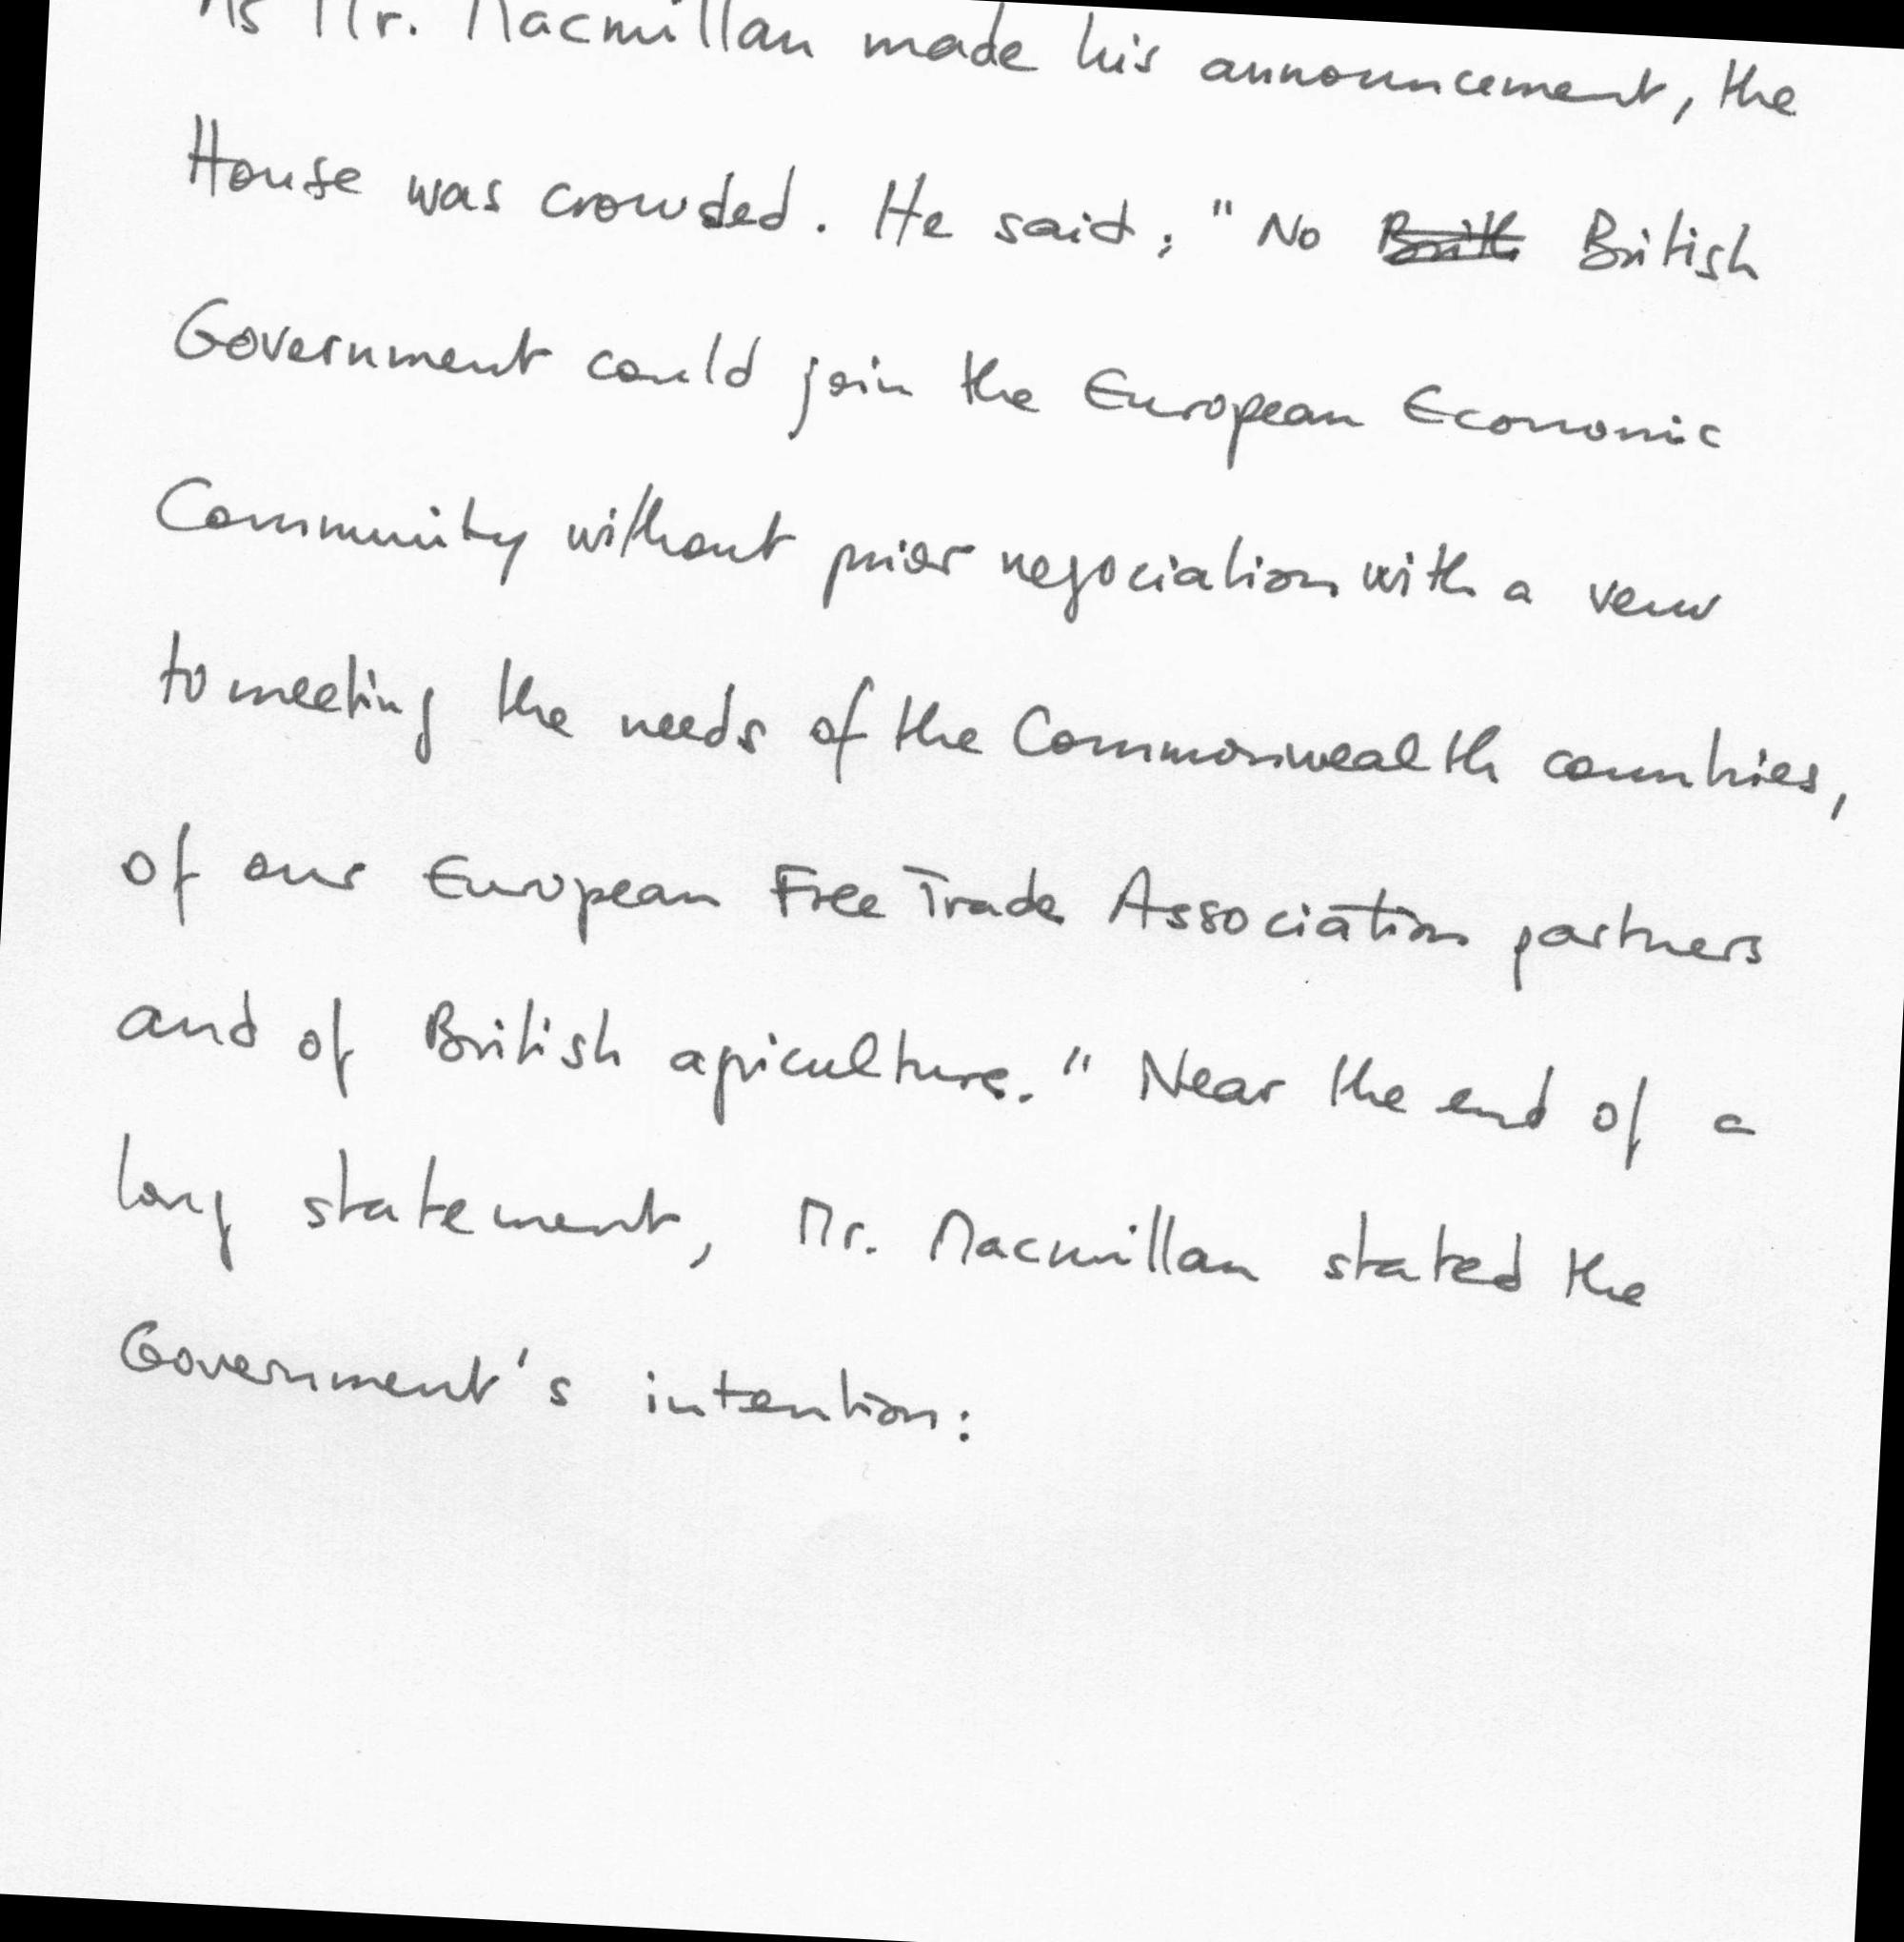 As Mr. Macmillan made his announcement, the
House was crowded. He said: "No British
Government could join the European Economic
Community without prior negociation with a veuw
to meeting the needs of the Commonwealth countries,
of our European Free Trade Association partners
and of British apiculture." Near the end of a
long statement, Mr. Macmillan stated the
Government's intention: